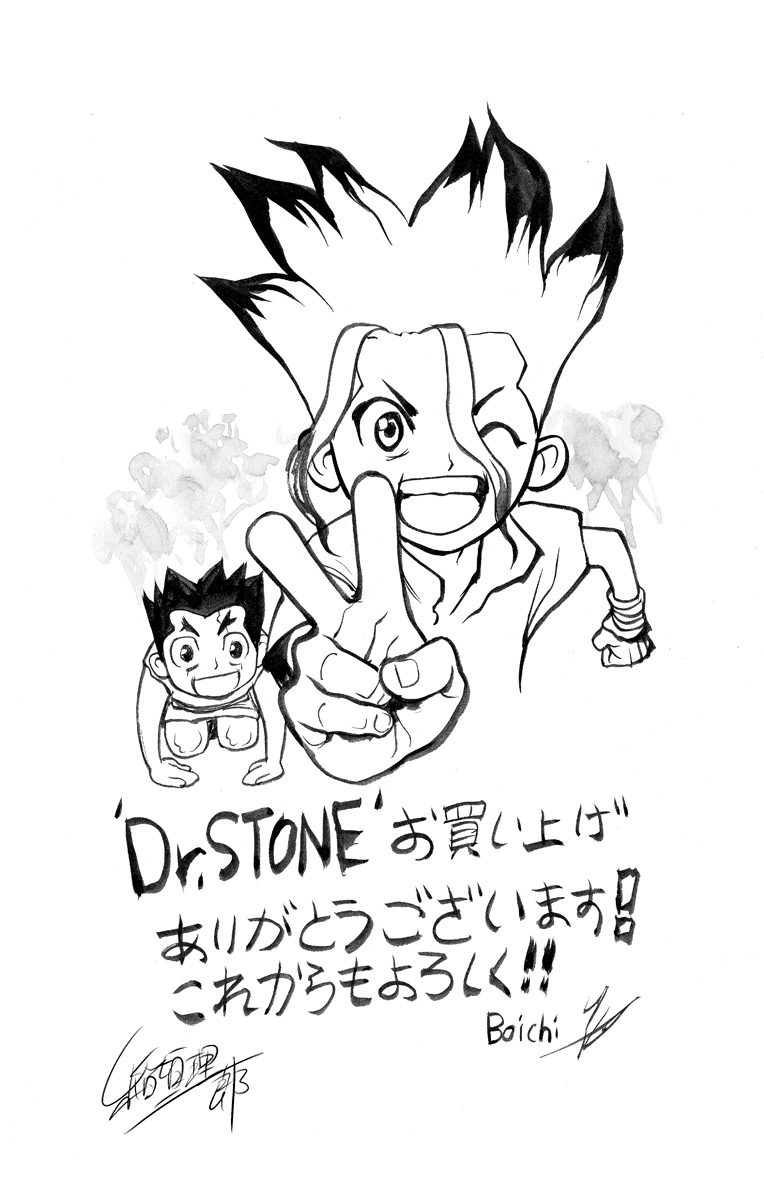 'Dr.STONE'お買い上げ
ありがとうございます!!
これからもよろしく!!
Boichi
稲垣理一郎